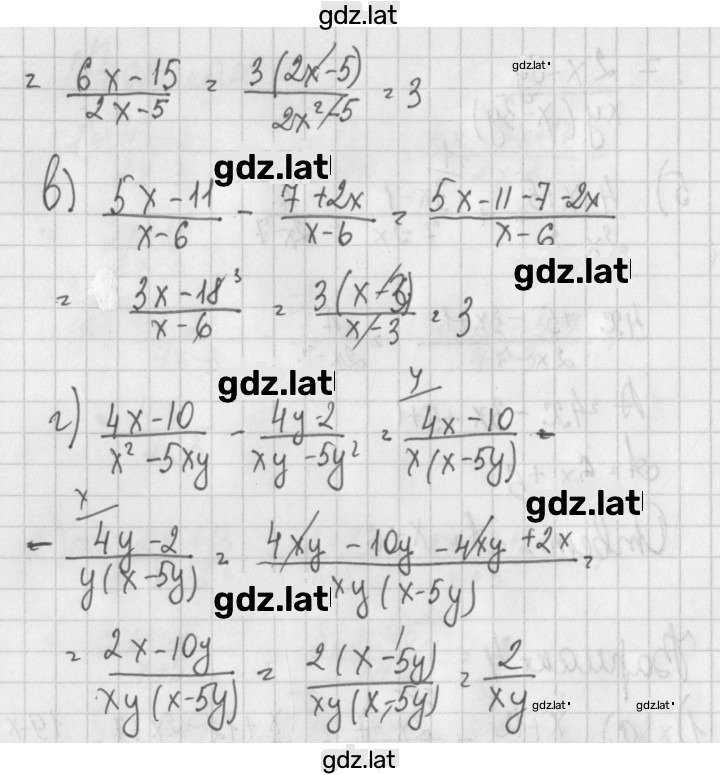 gdz.lat
= (6x - 15)/(2x - 5) = 3(2x - 5)/(2x² - 5) = 3
gdz.lat
gdz.lat
в) (5x - 11)/(x - 6) - (7 + 2x)/(x - 6) = (5x - 11 - 7 - 2x)/(x - 6)
gdz.lat
= (3x - 18³)/(x - 6) = 3(x - 3)/(x - 3) = 3
gdz.lat
y
г) (4x - 10)/(x² - 5xy) - (4y - 2)/(xy - 5y²) = (4x - 10)/(x(x - 5y)) -
gdz.lat
x
- (4y - 2)/(y(x - 5y)) = (4xy - 10y - 4xy + 2x)/(xy(x - 5y)) =
gdz.lat
= (2x - 10y)/(xy(x - 5y)) = 2(x - 5y)/(xy(x - 5y)) = 2/(xy)
gdz.lat
gdz.lat
gdz.lat